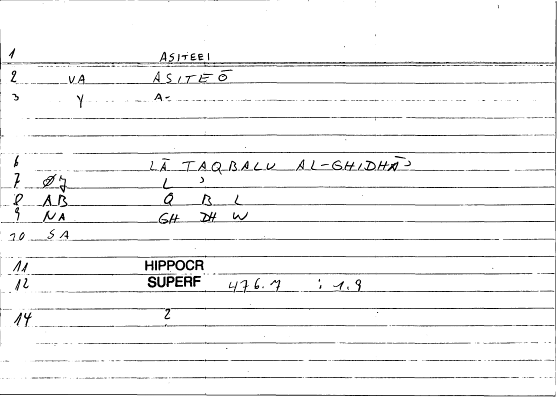 1 ASITEEI
2 VA ASITEŌ
3 Y A-
6 LĀ TAQBALU AL-GHIDHĀ'
7 ØJ L '
8 AB Q B L
9 NA GH DH W
10 SA
11 HIPPOCR
12 SUPERF 476.7 : 1.9
14 2